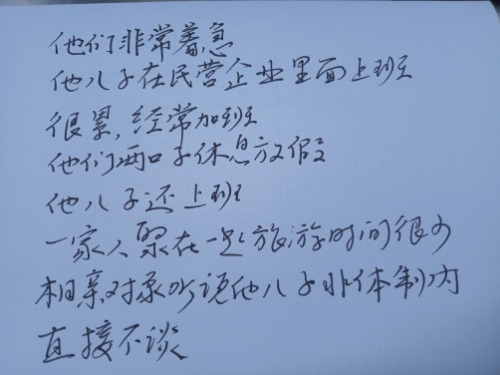 他们非常着急
他儿子在民营企业里面上班
很累,经常加班
他们两口子休息放假
他儿子还上班
一家人聚在一起旅游时间很少
相亲对象听说他儿子非体制内
直接不谈